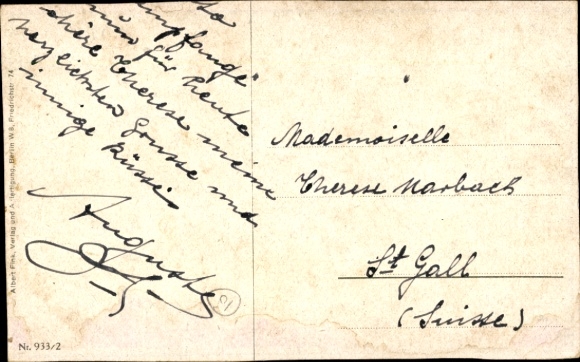 so
empfange
nun für heute
chère Therese meine
herzlichsten Grüsse und
innige Küsse.
Auguste
Mademoiselle
Therese Marbach
St Gall
(Suisse)
Albert Fink, Verlag und Anfertigung, Berlin W.8, Friedrichstr. 74
Nr. 933/2